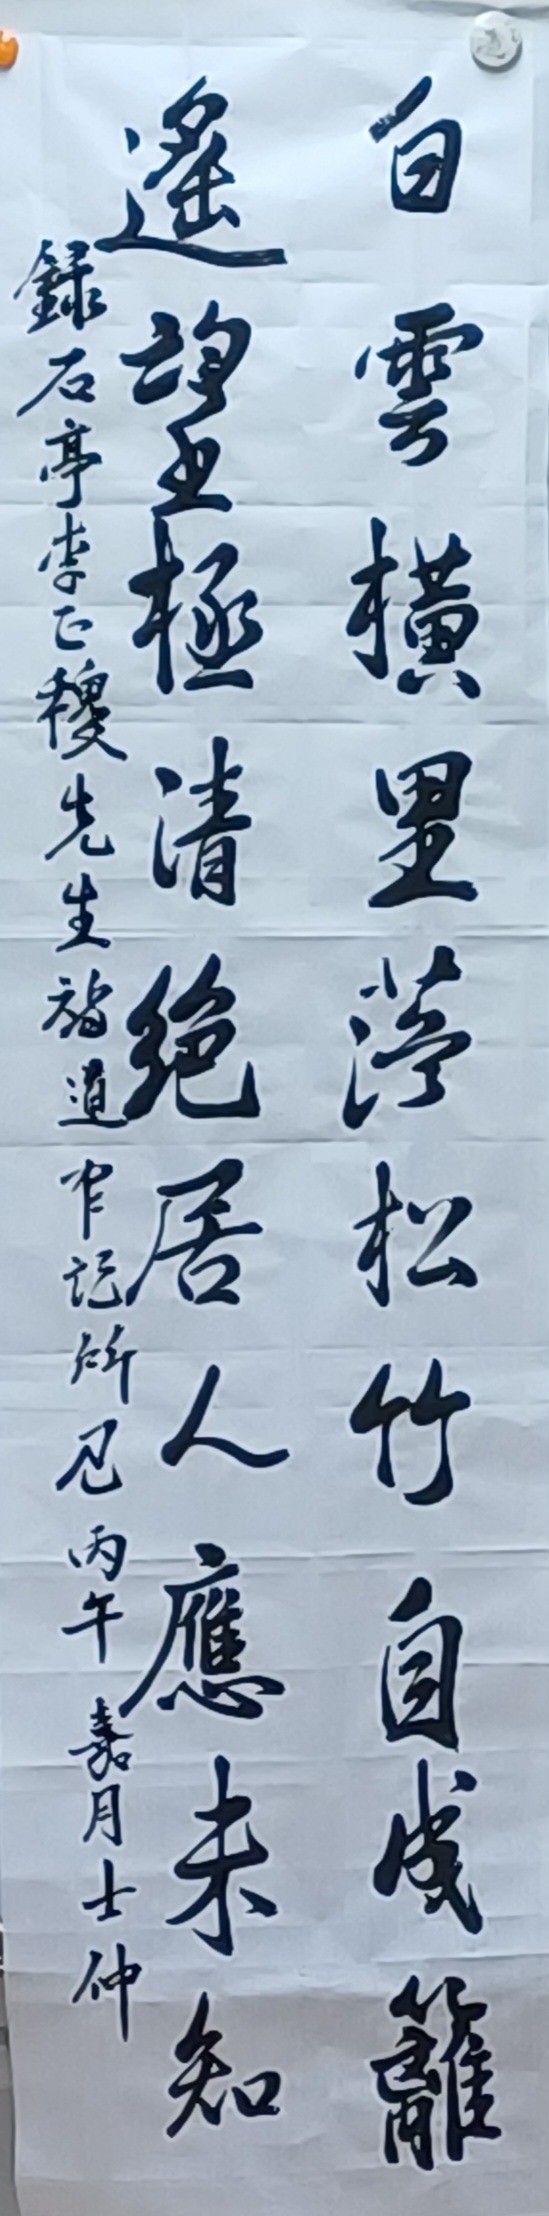 白雲橫里蕚松竹自成籬
遙望極清絕居人應未知
錄石亭李正穆先生詩道中記所見丙午嘉月士仲